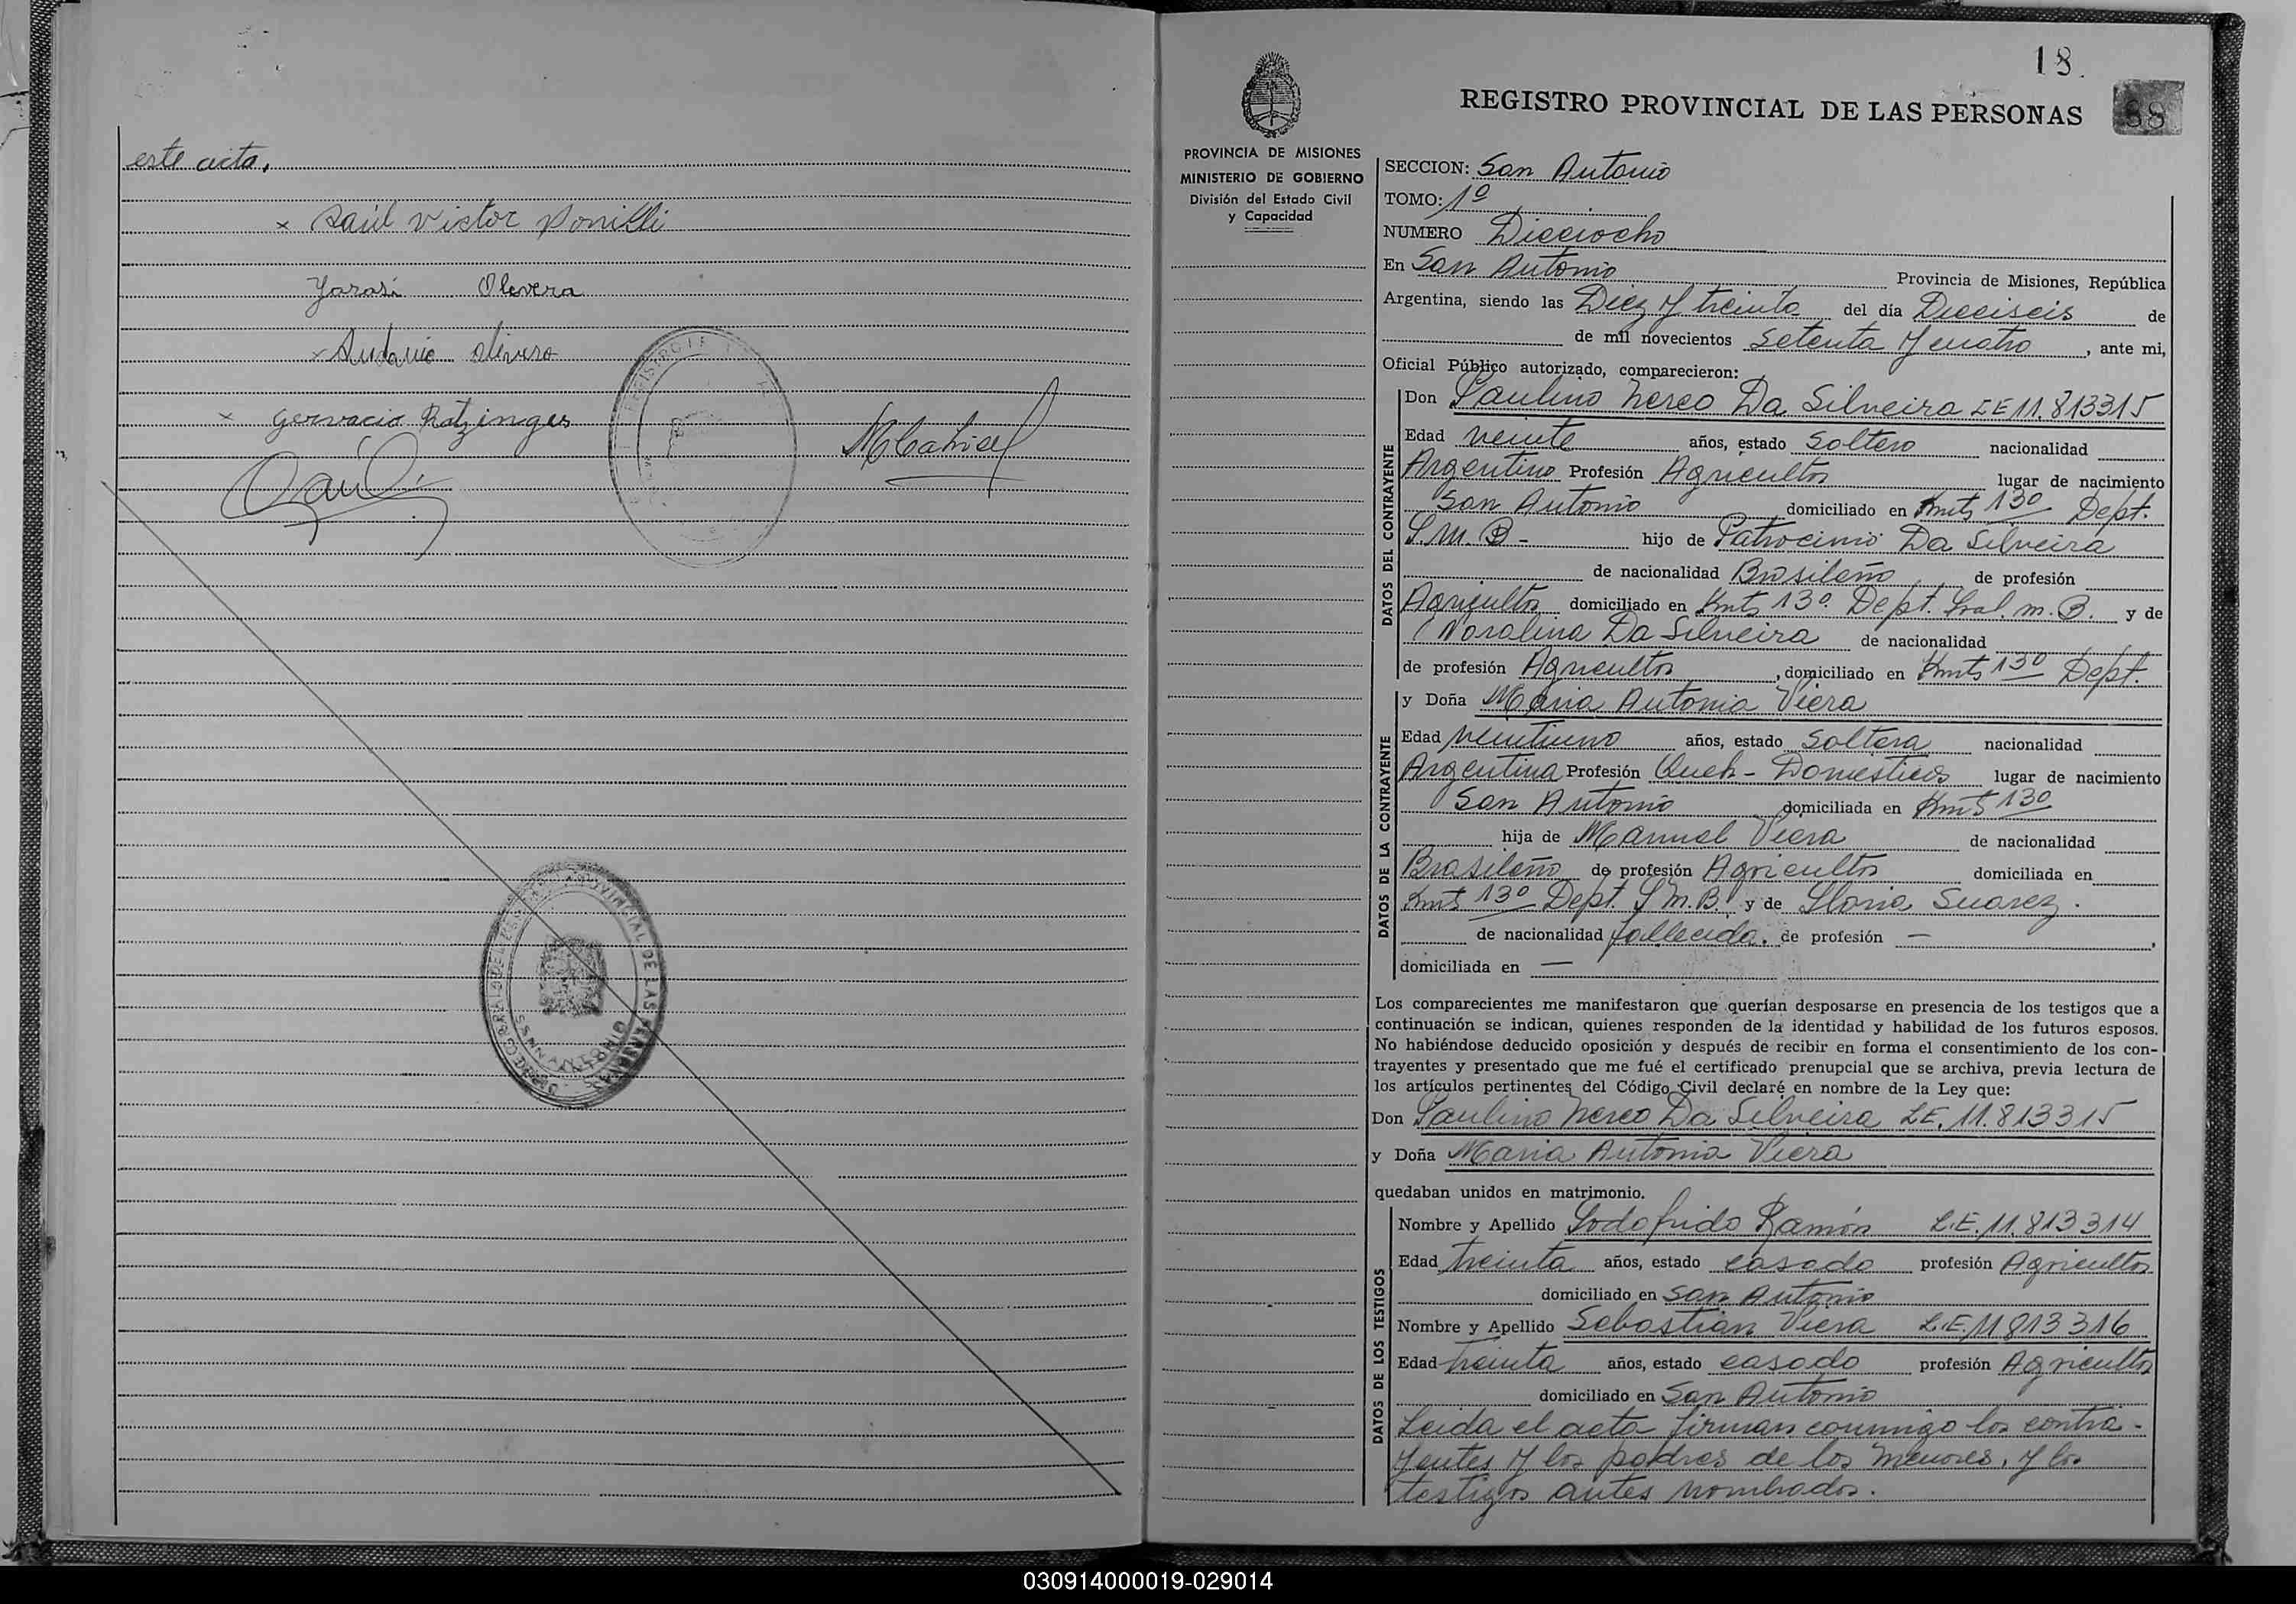 este acta,
x Raúl Victor
Yarasi Olevera
x Antonio Olivera
x Gervacio Ratzinger
18.
88
REGISTRO PROVINCIAL DE LAS PERSONAS
PROVINCIA DE MISIONES
MINISTERIO DE GOBIERNO
División del Estado Civil
y Capacidad
SECCION: San Antonio
TOMO: 1º
NUMERO Dieciocho
En San Antonio Provincia de Misiones, República
Argentina, siendo las Diez y treinta del día Dieciseis de
de mil novecientos Setenta y cuatro, ante mi,
Oficial Público autorizado, comparecieron:
DATOS DEL CONTRAYENTE
Don Paulino Nereo Da Silveira LE 11.813315
Edad veinte años, estado Soltero nacionalidad
Argentino Profesión Agricultor lugar de nacimiento
San Antonio domiciliado en Kmts 130 Dept.
G.M.B- hijo de Patrocinio Da Silveira
de nacionalidad Brasileño de profesión
Agricultor domiciliado en Kmts 130. Dept. Gral. m. B. y de
Da Silveira de nacionalidad
de profesión Agricultor, domiciliado en Kmts 130 Dept.
DATOS DE LA CONTRAYENTE
y Doña Maria Antonia Viera
Edad veintiuno años, estado Soltera nacionalidad
Argentina Profesión Queh-Domesticos lugar de nacimiento
San Antonio domiciliada en Kmts 130
hija de Manuel Viera de nacionalidad
Brasileño de profesión Agricultor domiciliada en
Kmts 130 Dept. G M.B. y de Gloria Suarez.
de nacionalidad fallecida. de profesión —,
domiciliada en —
Los comparecientes me manifestaron que querían desposarse en presencia de los testigos que a
continuación se indican, quienes responden de la identidad y habilidad de los futuros esposos.
No habiéndose deducido oposición y después de recibir en forma el consentimiento de los con-
trayentes y presentado que me fué el certificado prenupcial que se archiva, previa lectura de
los artículos pertinentes del Código Civil declaré en nombre de la Ley que:
Don Paulino Nereo Da Silveira LE. 11.813315
y Doña Maria Antonia Viera
quedaban unidos en matrimonio.
DATOS DE LOS TESTIGOS
Nombre y Apellido Godofrido Ramón L.E. 11.813314
Edad treinta años, estado casado profesión Agricultor
domiciliado en San Antonio
Nombre y Apellido Sebastian Viera L.E. 11 813 316
Edad treinta años, estado casado profesión Agricultor
domiciliado en San Antonio
Leida el acta firman conmigo los contra-
yentes y los padres de los menores, y los
testigos antes nombrados.
030914000019-029014